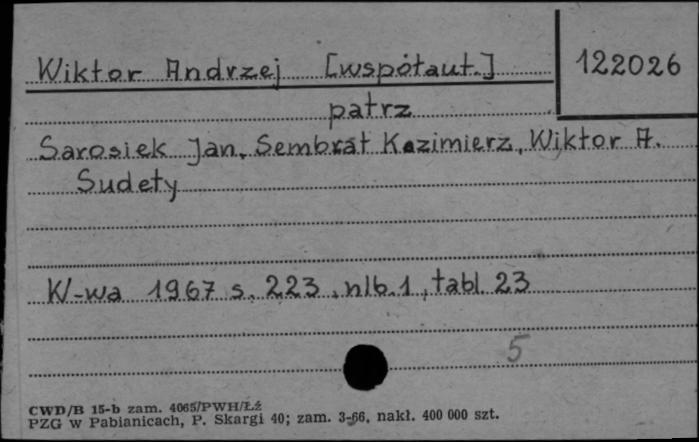 Wiktor Andrzej [współaut.] 122026
patrz
Sarosiek Jan, Sembrat Kazimierz, Wiktor A.
Sudety
W-wa 1967 s. 223, nlb. 1, tabl. 23
5
CWD/B 15-b zam. 4065/PWH/Łź
PZG w Pabianicach, P. Skargi 40; zam. 3-66, nakł. 400 000 szt.